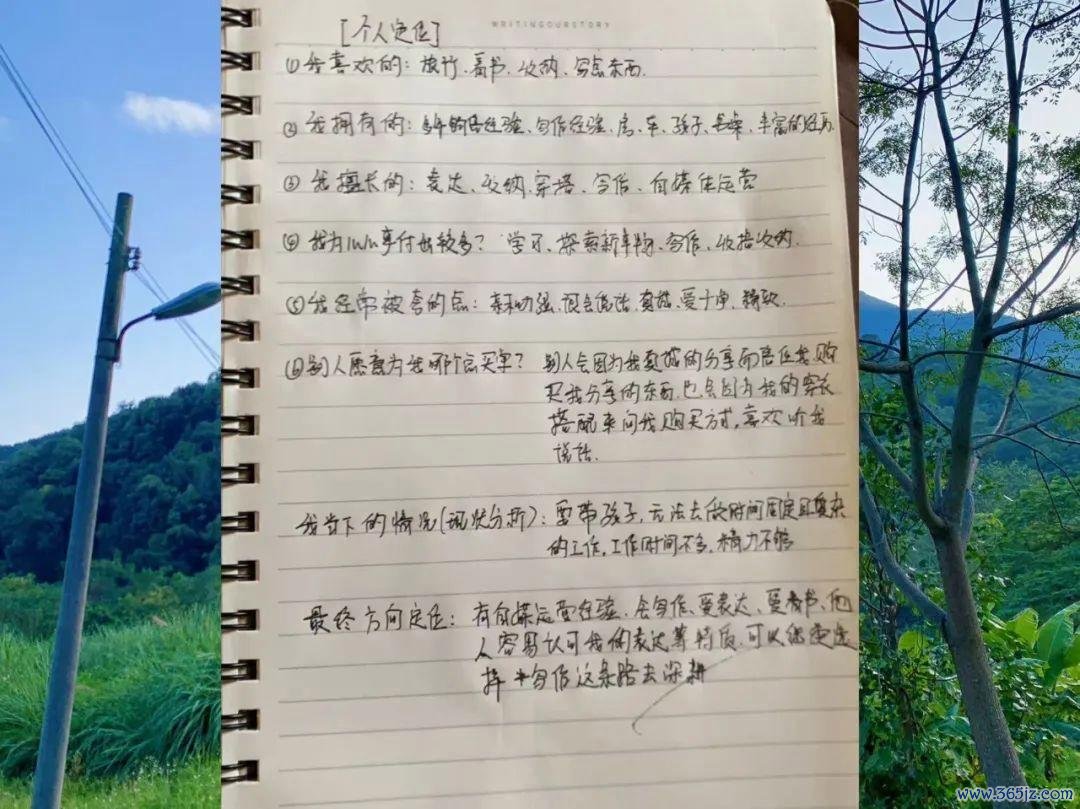 WRITINGOURSTORY
[个人定位]
①我喜欢的：旅行、看书、收纳、写写东西.
②我拥有的：多年销售经验、写作经验、房、车、孩子、老公、丰富的经历
③我擅长的：表达、收纳、穿搭、写作、自媒体运营
④我为什么事付出较多？学习、探索新事物、写作、收拾收纳.
⑤我经常被夸的点：亲和力强、很会说话、真诚、爱干净、精致.
⑥别人愿意为我哪个点买单？ 别人会因为我真诚的分享而信任我,购
买我分享的东西.也会因为我的穿衣
搭配来问我购买方式,喜欢听我
说话.
我当下的情况(现状分析)：要带孩子,无法去做时间固定且复杂
的工作,工作时间不多,精力不够
最终方向定位：有自媒运营经验、会写作、爱表达、爱看书、他
人容易认可我的表达等特质.可以继续选
择 写作这条路去深耕
www.365jz.com